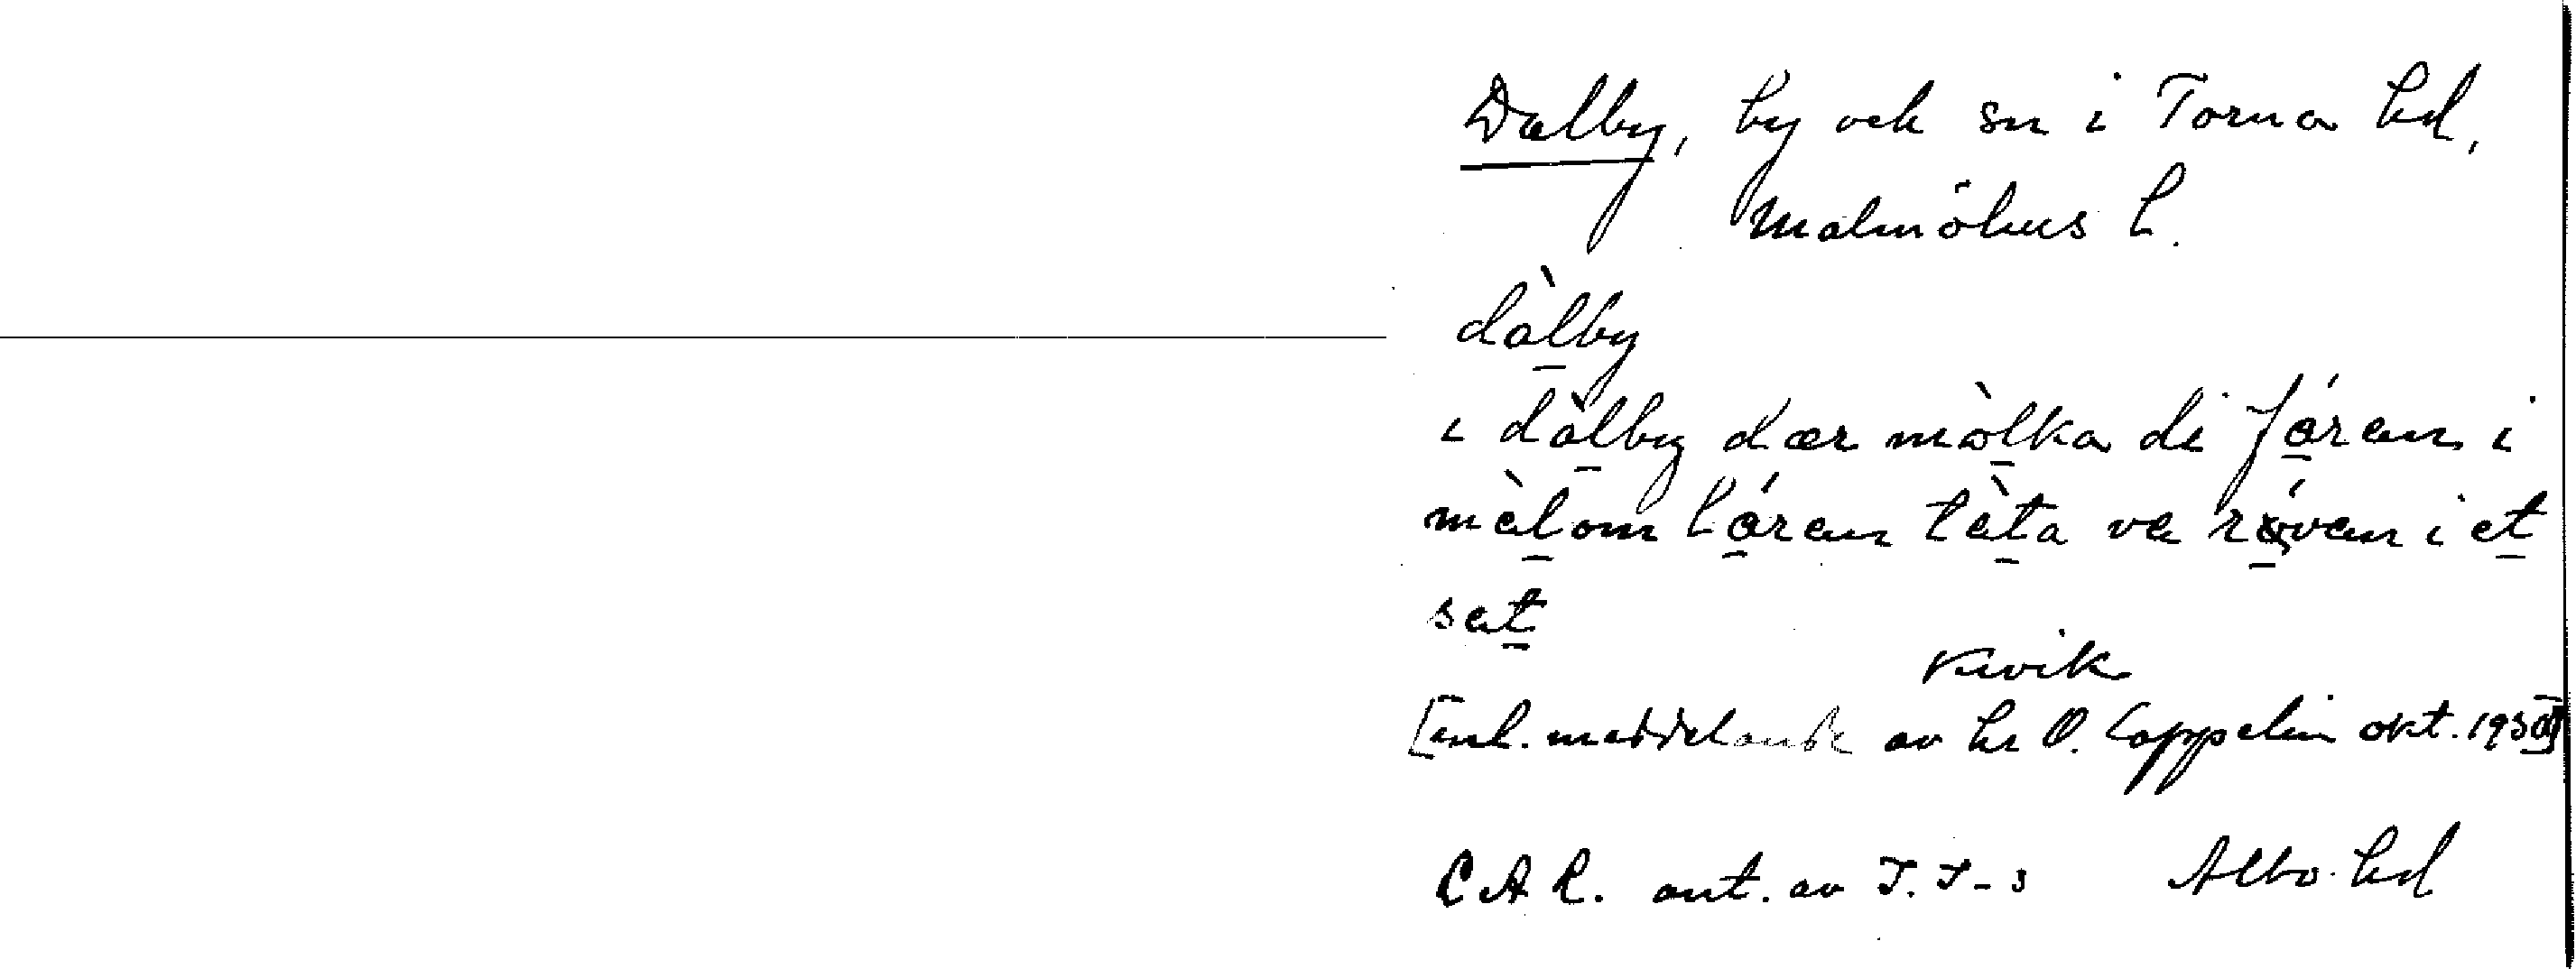 Dalby, by och sn i Torna hd,
Malmöhus L.
dàl̠by
i dàl̠by dær mòl̠ka di fá̠ren i
mèl̠om lá̠ren tèt̠a ve rǿ̠ven i et̠
set̠
Kivik
[enl. meddelande av hr O. Cappelin okt. 1930]
C A R. ant. av J. J-s Albo hd